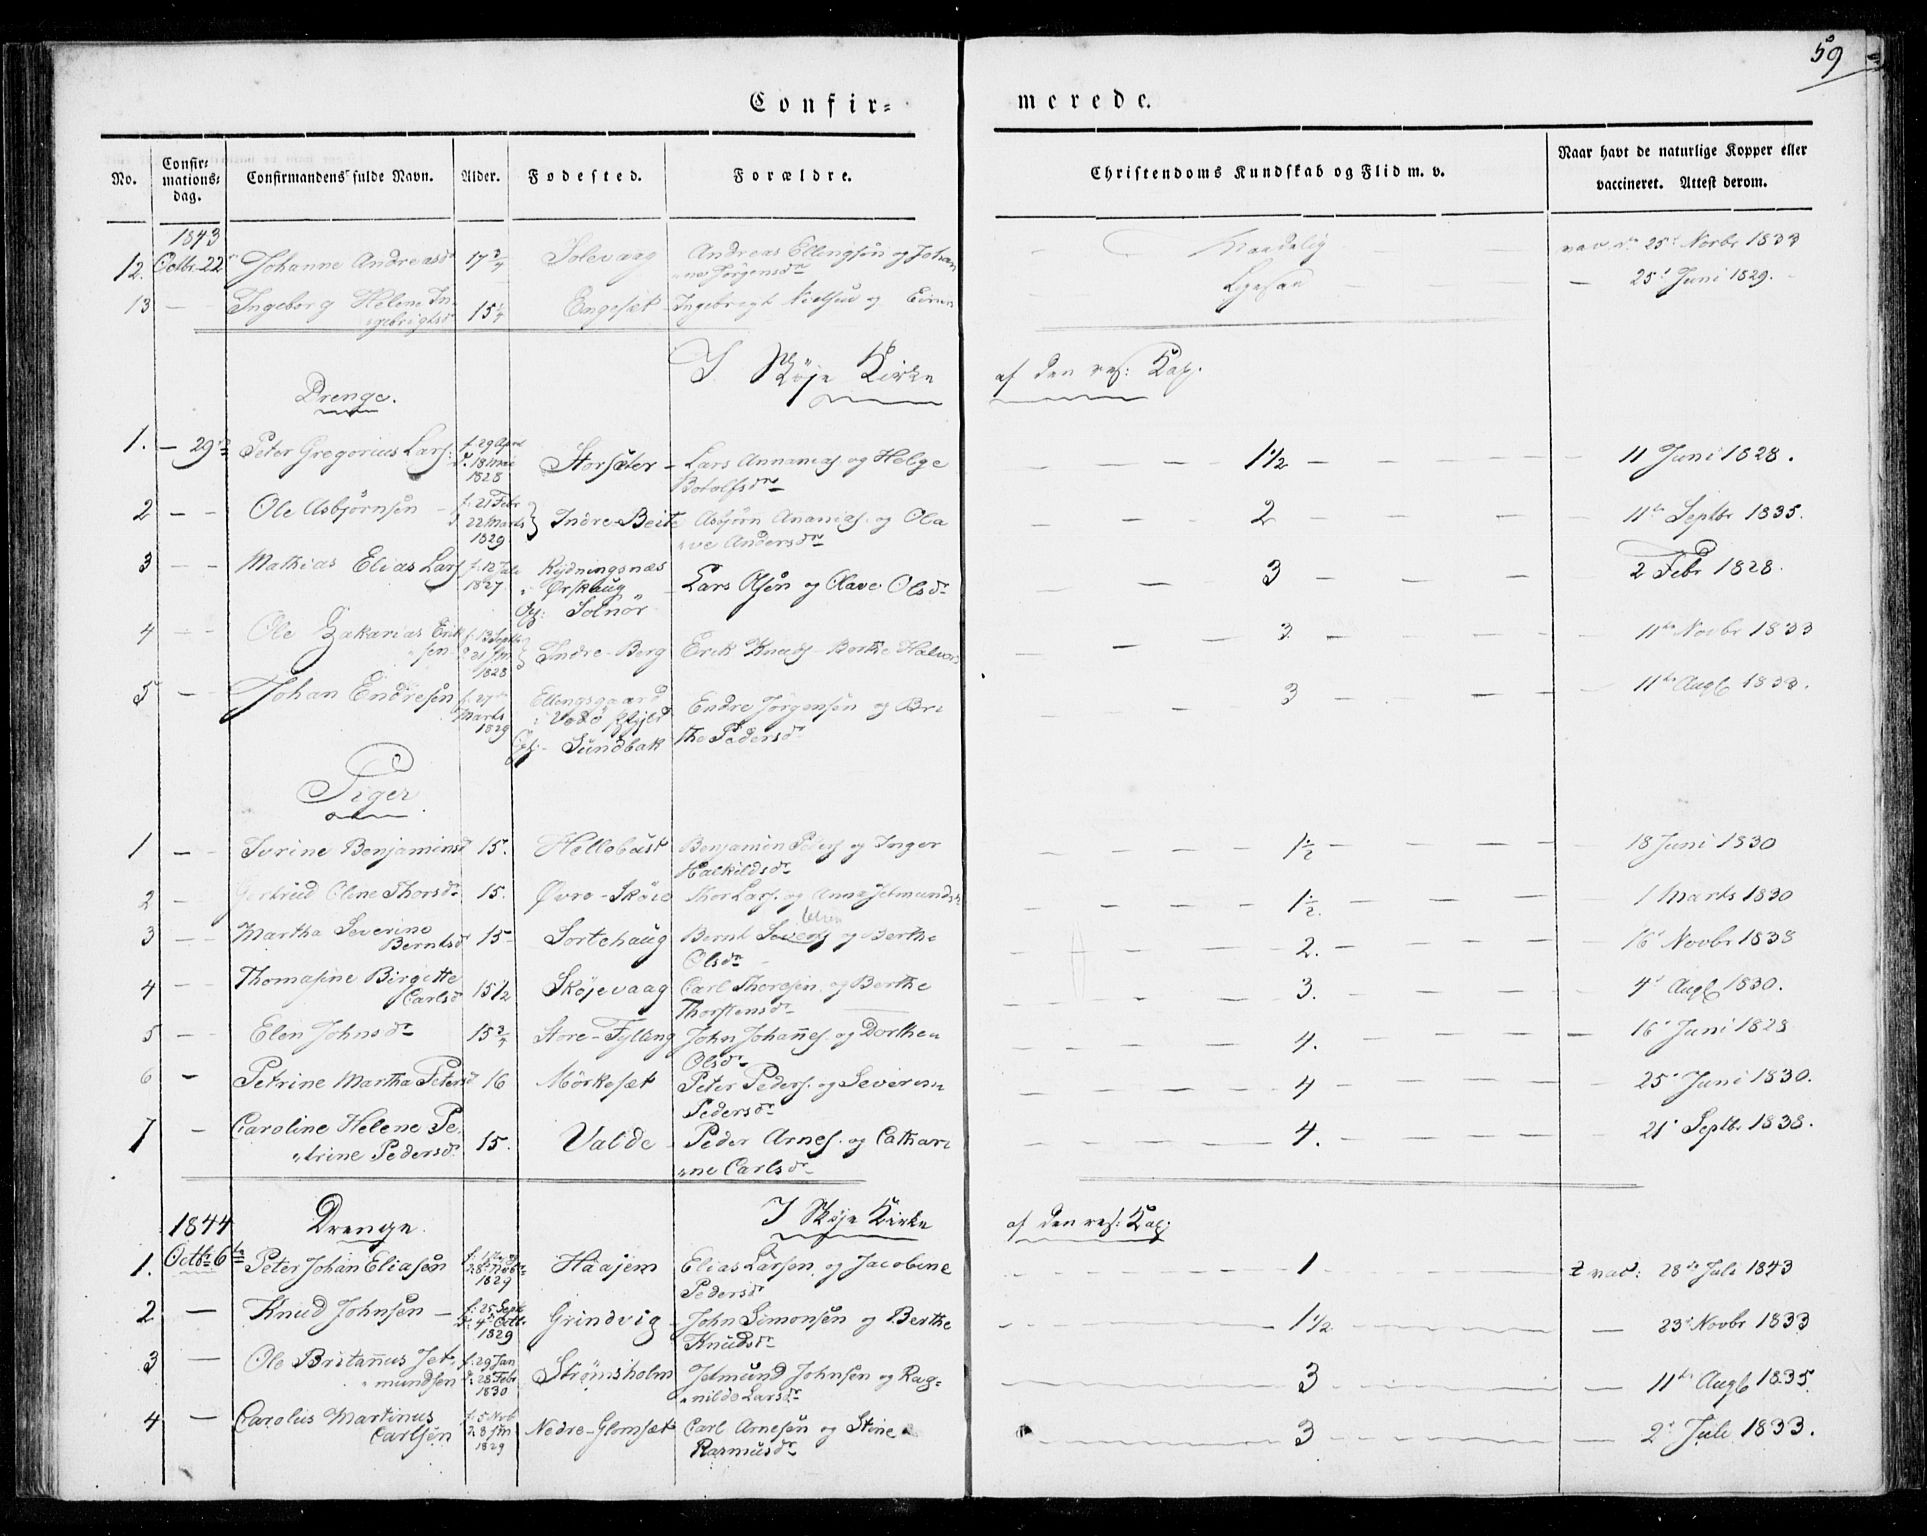 59
Confir= merede.
No. Confir=mations=dag. Confirmandens fulde Navn. Alder. Fødested. Forældre. Christendoms Kundskab og Flid m. v. Naar havt de naturlige Kopper eller vaccineret. Attest derom.
1843
12. Octbr. 22 Johanne Andreasdr 17 3/4 Solevaag Andreas Ellingsøn og Johan„ne Jørgensdr Maadelig vac. d. 25 Novbr 1833
13 — — Ingeborg Helene In„gebrigtsdr 15 1/4 Engeset Ingebrigt Nielsen og Ligesaa — 25 Juni 1829.
Drenge. I Skøje Kirke af den res: Kap.
1. — 29 Peter Gregorius Lars: f. 29 April d. 18 Mai 1828 Storsæter Lars Annanias og Helge Botolfsdr 1 1/2 11 Juni 1828.
2 — — Ole Asbjørnsøn f. 21 Febr d. 22 Marts 1829 Indre-Beite Asbjørn Ananias. og Ola„ve Andersdr 2 11te Septbr 1835.
3 — — Mathias Elias Lars. f. 12 Juli 1827 Rydningsnæs i Ørskaug Oph: Solnør Lars Olsøn og Olave Olsdr 3 2 Febr 1828.
4 — — Ole Zakarias Erik„sen f. 13 Septbr d. 21 1828 Indre-Berg Erik Knuds. Berthe Halvors 3 11te Novbr 1833
5 — Johan Endresøn f. 27 Marts 1829 Ellingsgaard i Oph: Sundbak Endre Jørgensøn og Bri„the Pedersdr 3 11te Augs 1833.
Piger
1 — Ivrine Benjaminsd 15. Hellebust Benjamin Peders og Inger Halkildsdr 1 1/2 18 Juni 1830
2 — Gertrud Oline Thorsdr 15. Øvre-Skøie Thor Lars. og Anne Jetmundsd 1 1/2. 1 Marts 1830
3 — — Martha Severine Berntsd 15 — Sortehaug Bernt Severs og Berthe Olsdr 2. 16 Novbr 1838
4 — — Thomasine Birgitte Carlsd 15 1/2 Skøjevaag Carl Thoresøn og Berthe Thorstensdr 3. 4 Augs 1830.
5 — Elen Johnsdr 15 3/4 Store-Fylling John Johannes. og Dorthea Olsdr 4. 16 Juni 1828
6 — Petrine Martha Petersd 16 Mørkeset Peter Peders. og Severine Pedersdr 4 25 Juni 1830.
7 — Caroline Helene Pe„trine Pedersdr. 15. Valde Peder Arnes. og Cathari„ne Carlsdr 4. 21 Septbr 1838.
1844 Drenge. I Skøje Kirke af den res: Kap.
1. Octbr 6te Peter Johan Eliasøn 1829 Haajem Elias Larsøn og Jacobine Pedersdr 1 vac: 28de Juli 1843
2 — Knud Johnsøn — f. 25 Sept. d. 4 Octbr 1829 Grindvig John Simonsøn og Berthe Knudsdr 1 1/2 — 23 Novbr 1833
3 — Ole Britanus Jet„mundsen f. 29 Jan d. 28 Febr 1830 Strømsholm Jetmund Johnsøn og Rag„nilde Larsdr 3 — 11te Augs 1835.
4 — Carolus Martinus Carlsøn f. 5 Nov. d. 8 1829 Nedre-Glomset Carl Arnesøn og Stine Rasmusdr 3 — 2 Juli 1833.